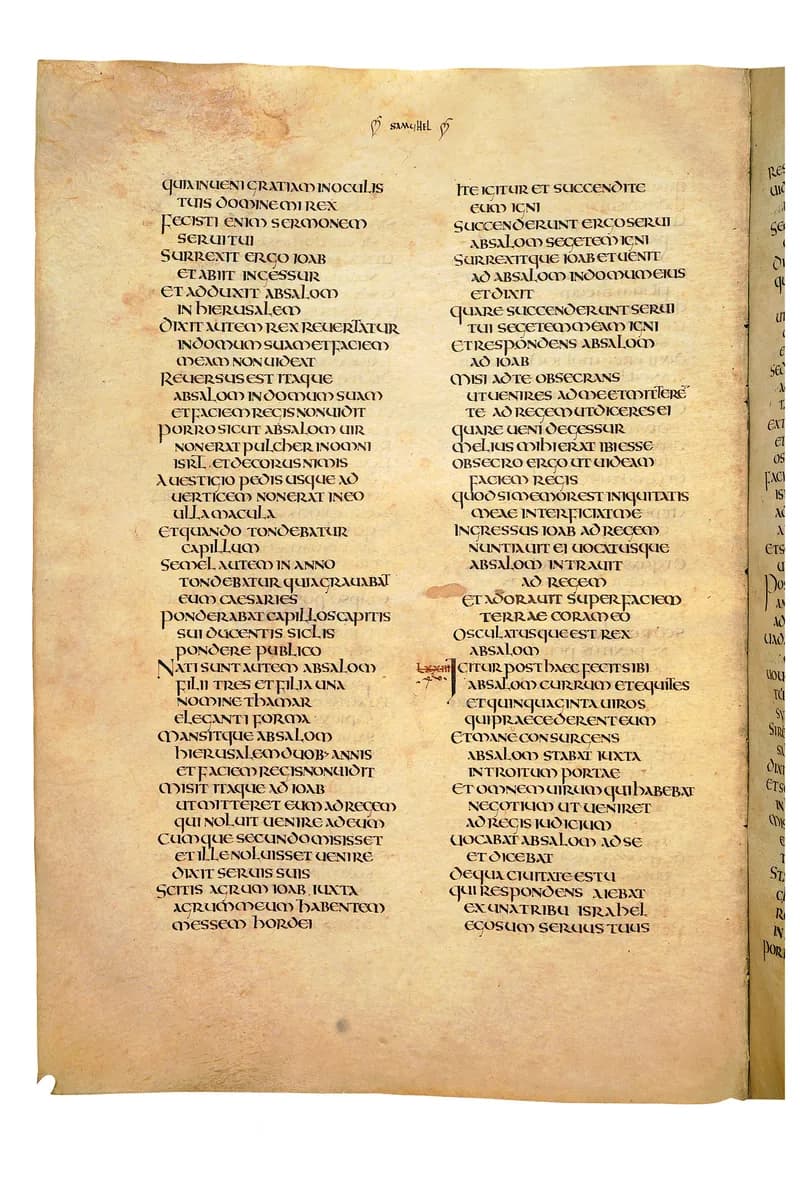 SAMUHEL
QUIA INUENI GRATIAM IN OCULIS
TUIS DOMINE MI REX
FECISTI ENIM SERMONEM
SERUI TUI
SURREXIT ERGO IOAB
ET ABIIT IN GESSUR
ET ADDUXIT ABSALOM
IN HIERUSALEM
DIXIT AUTEM REX REUERTATUR
IN DOMUM SUAM ET FACIEM
MEAM NON UIDEAT
REUERSUS EST ITAQUE
ABSALOM IN DOMUM SUAM
ET FACIEM REGIS NON UIDIT
PORRO SICUT ABSALOM UIR
NON ERAT PULCHER IN OMNI
ISRL ET DECORUS NIMIS
A UESTIGIO PEDIS USQUE AD
UERTICEM NON ERAT IN EO
ULLA MACULA
ET QUANDO TONDEBATUR
CAPILLUM
SEMEL AUTEM IN ANNO
TONDEBATUR QUIA GRAUABAT
EUM CAESARIES
PONDERABAT CAPILLOS CAPITIS
SUI DUCENTIS SICLIS
PONDERE PUBLICO
NATI SUNT AUTEM ABSALOM
FILII TRES ET FILIA UNA
NOMINE THAMAR
ELEGANTI FORMA
MANSITQUE ABSALOM
HIERUSALEM DUOB· ANNIS
ET FACIEM REGIS NON UIDIT
MISIT ITAQUE AD IOAB
UT MITTERET EUM AD REGEM
QUI NOLUIT UENIRE AD EUM
CUMQUE SECUNDO MISISSET
ET ILLE NOLUISSET UENIRE
DIXIT SERUIS SUIS
SCITIS AGRUM IOAB IUXTA
AGRUM MEUM HABENTEM
MESSEM HORDEI
ITE IGITUR ET SUCCENDITE
EUM IGNI
SUCCENDERUNT ERGO SERUI
ABSALOM SEGETEM IGNI
SURREXITQUE IOAB ET UENIT
AD ABSALOM IN DOMUM EIUS
ET DIXIT
QUARE SUCCENDERUNT SERUI
TUI SEGETEM MEAM IGNI
ET RESPONDENS ABSALOM
AD IOAB
MISI AD TE OBSECRANS
UT UENIRES AD ME ET MITTERĒ
TE AD REGEM UT DICERES EI
QUARE UENI DE GESSUR
MELIUS MIHI ERAT IBI ESSE
OBSECRO ERGO UT UIDEAM
FACIEM REGIS
QUOD SI MEMOR EST INIQUITATIS
MEAE INTERFICIAT ME
INGRESSUS IOAB AD REGEM
NUNTIAUIT EI UOCATUSQUE
ABSALOM INTRAUIT
AD REGEM
ET ADORAUIT SUPER FACIEM
TERRAE CORAM EO
OSCULATUSQUE EST REX
ABSALOM
IGITUR POST HAEC FECIT SIBI
ABSALOM CURRUM ET EQUITES
ET QUINQUAGINTA UIROS
QUI PRAECEDERENT EUM
ET MANE CONSURGENS
ABSALOM STABAT IUXTA
INTROITUM PORTAE
ET OMNEM UIRUM QUI HABEBAT
NEGOTIUM UT UENIRET
AD REGIS IUDICIUM
UOCABAT ABSALOM AD SE
ET DICEBAT
DE QUA CIUITATE ES TU
QUI RESPONDENS AIEBAT
EX UNA TRIBU ISRAHEL
EGO SUM SERUUS TUUS